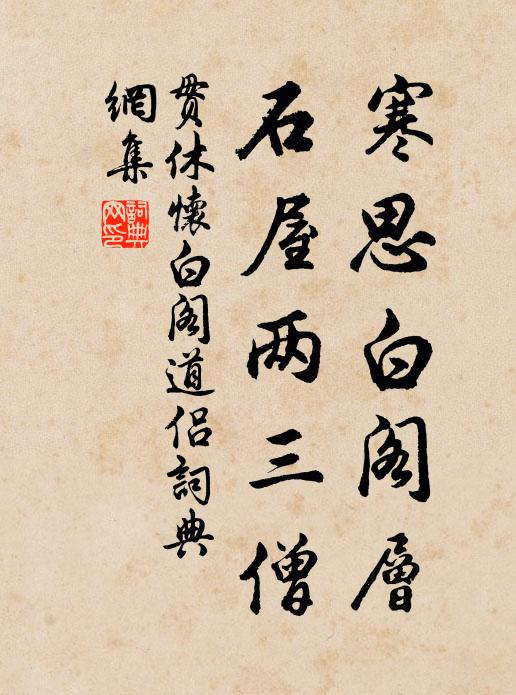 寒思白阁層
石屋两三僧
贯休懷白阁道侣詞典
網集
詞典
网印